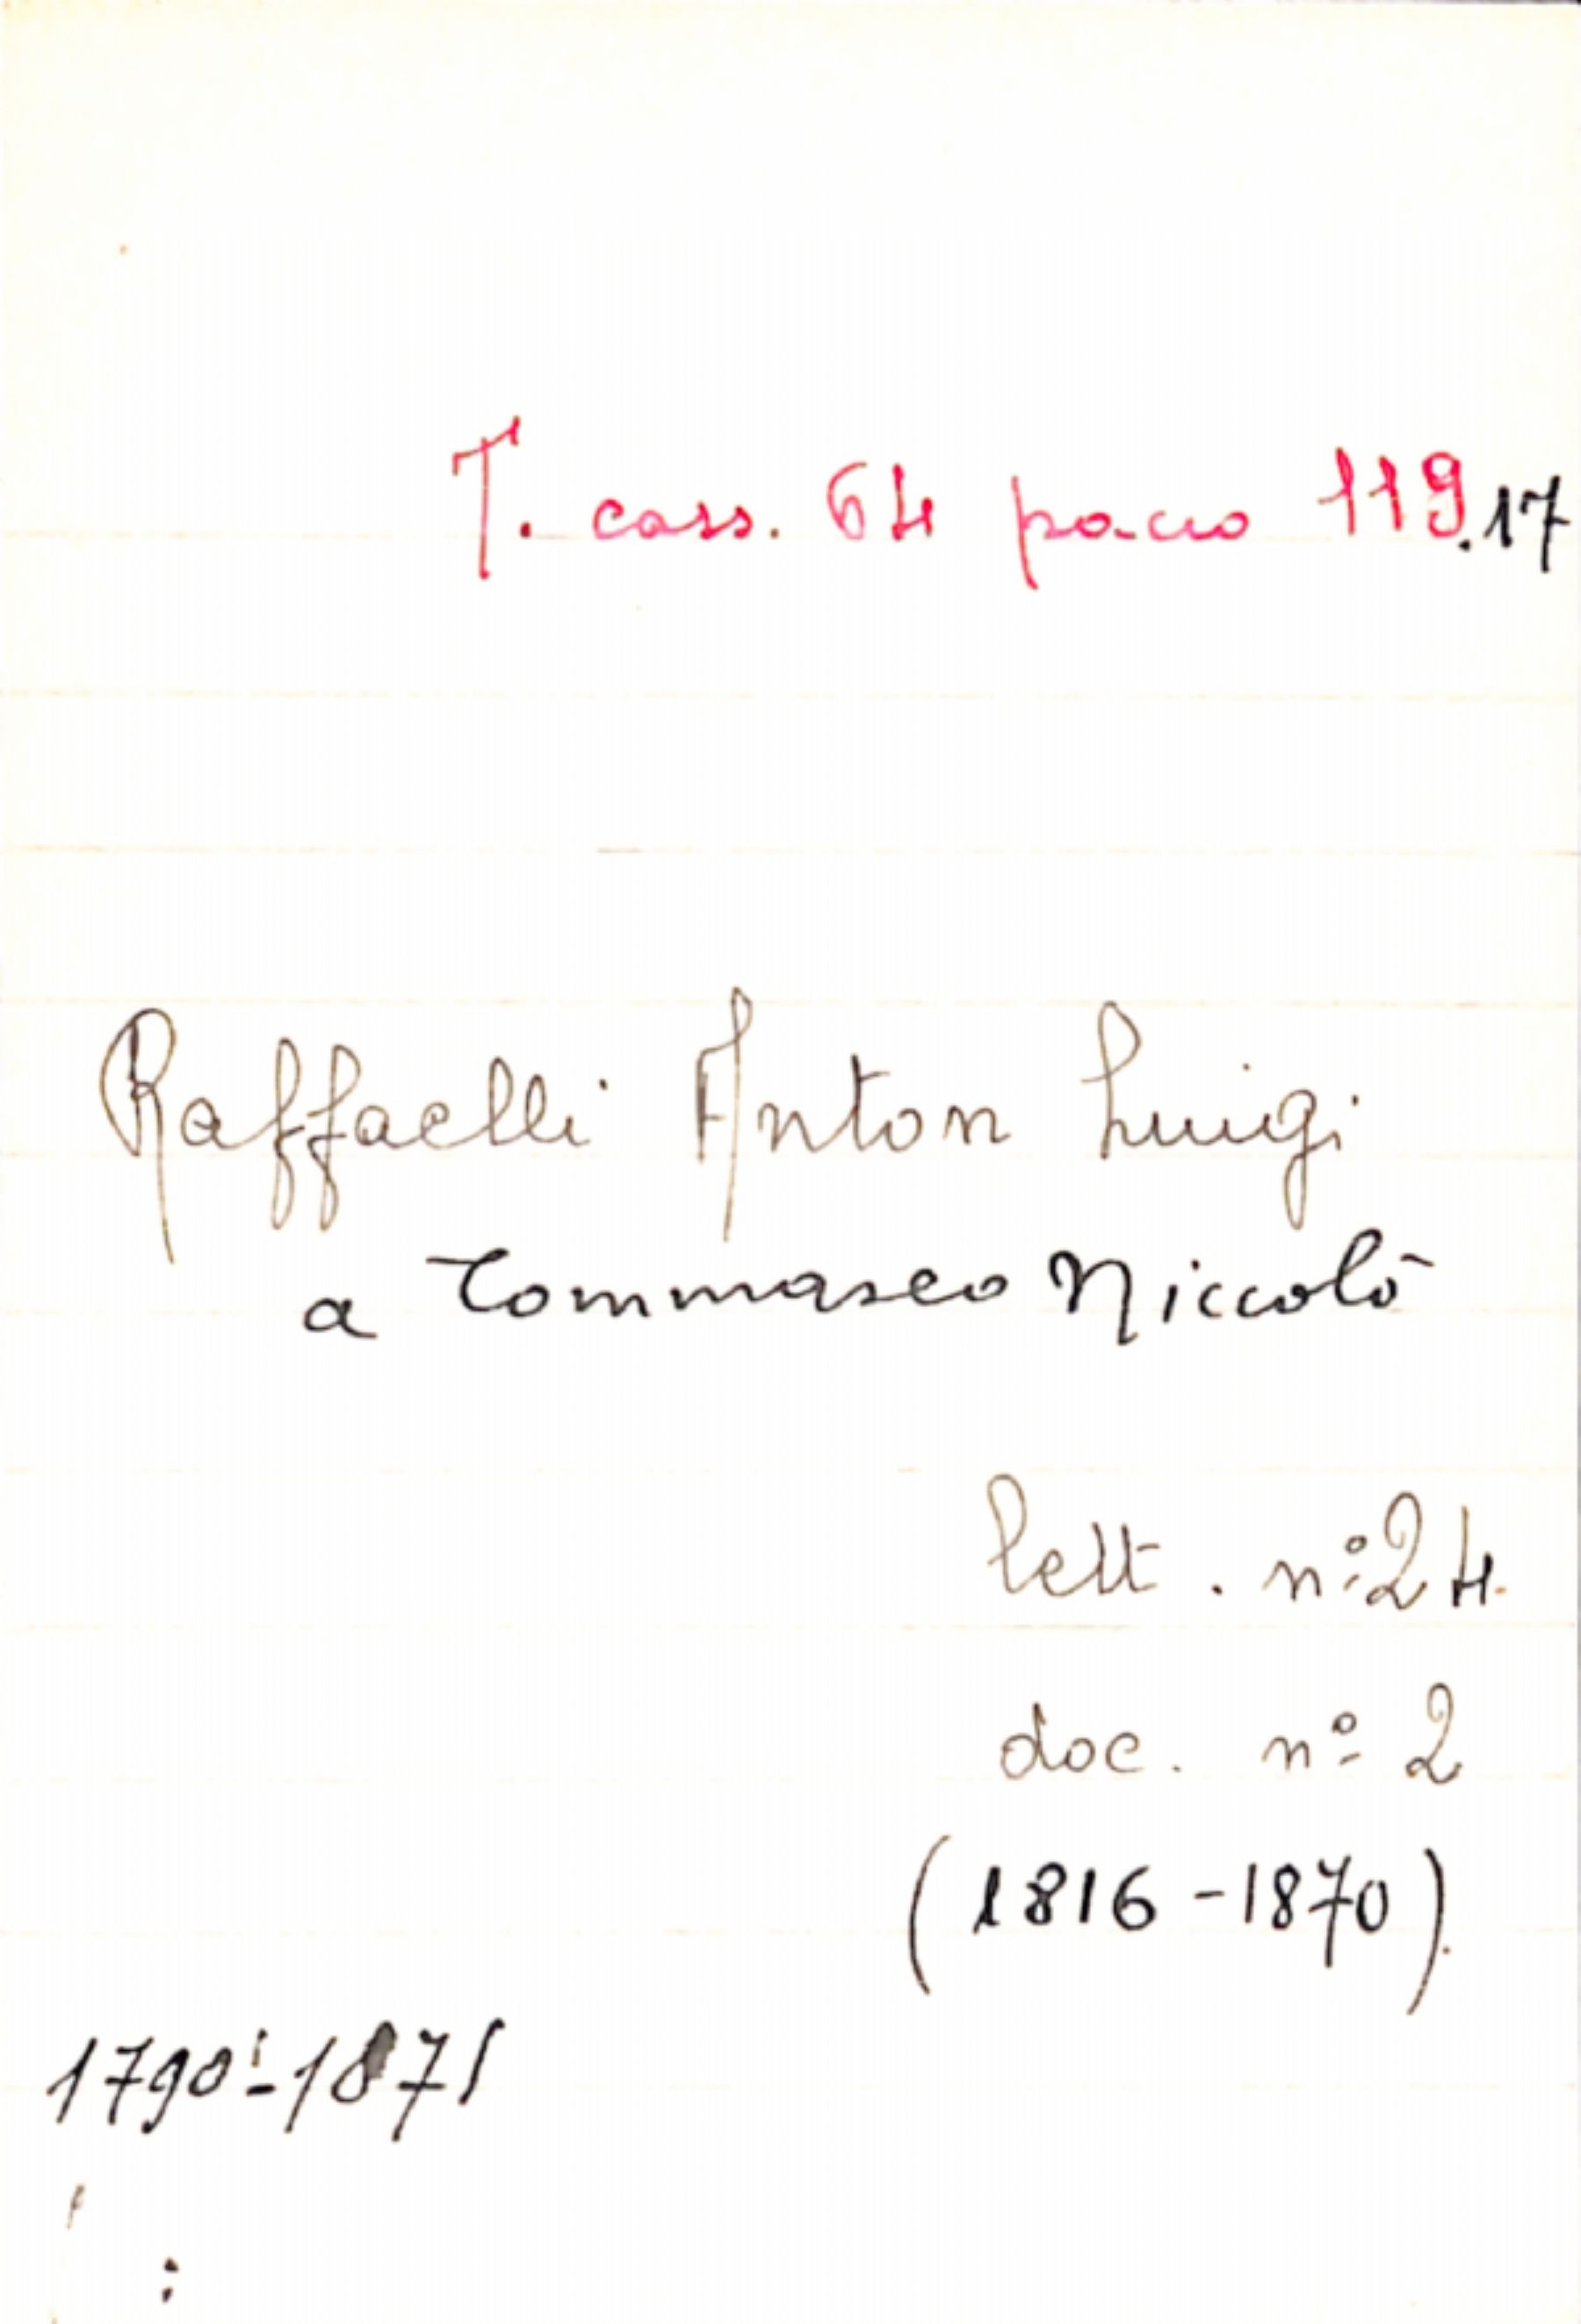 T. cass. 64 pacco 119.17
Raffaelli Anton Luigi
a Tommaseo Niccolò
lett. nº 24
doc. nº 2
(1816-1870)
1790-1871